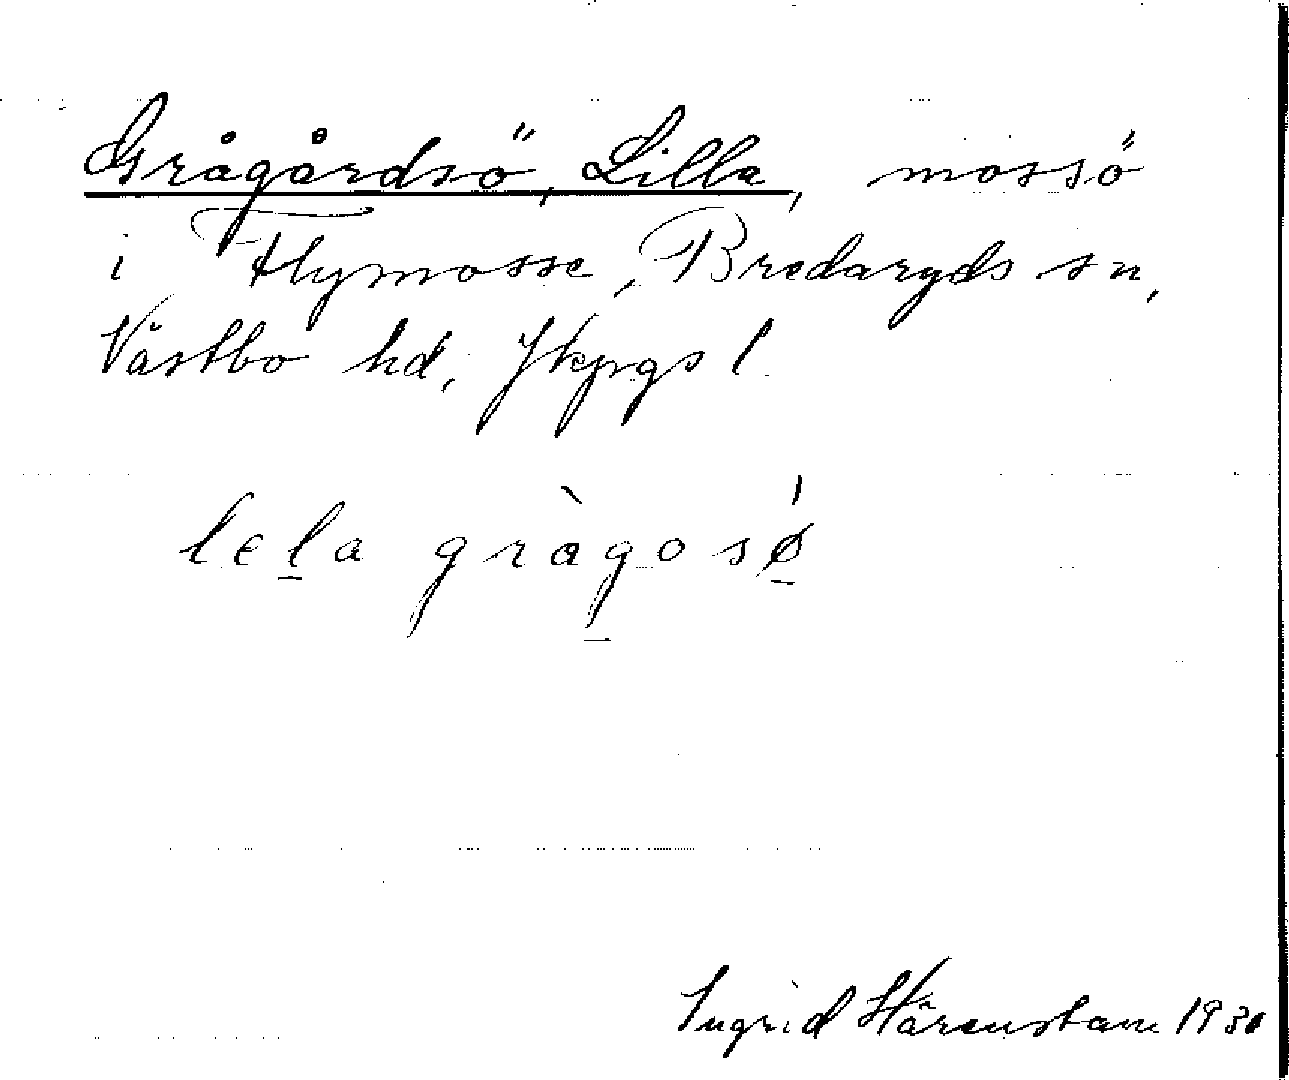 Grågårdsö, Lilla, mossö
i Flymosse, Bredaryds sn,
Västbo hd, Jkpgs l.
lela gràgosǿ
Ingrid Härenstam 1930